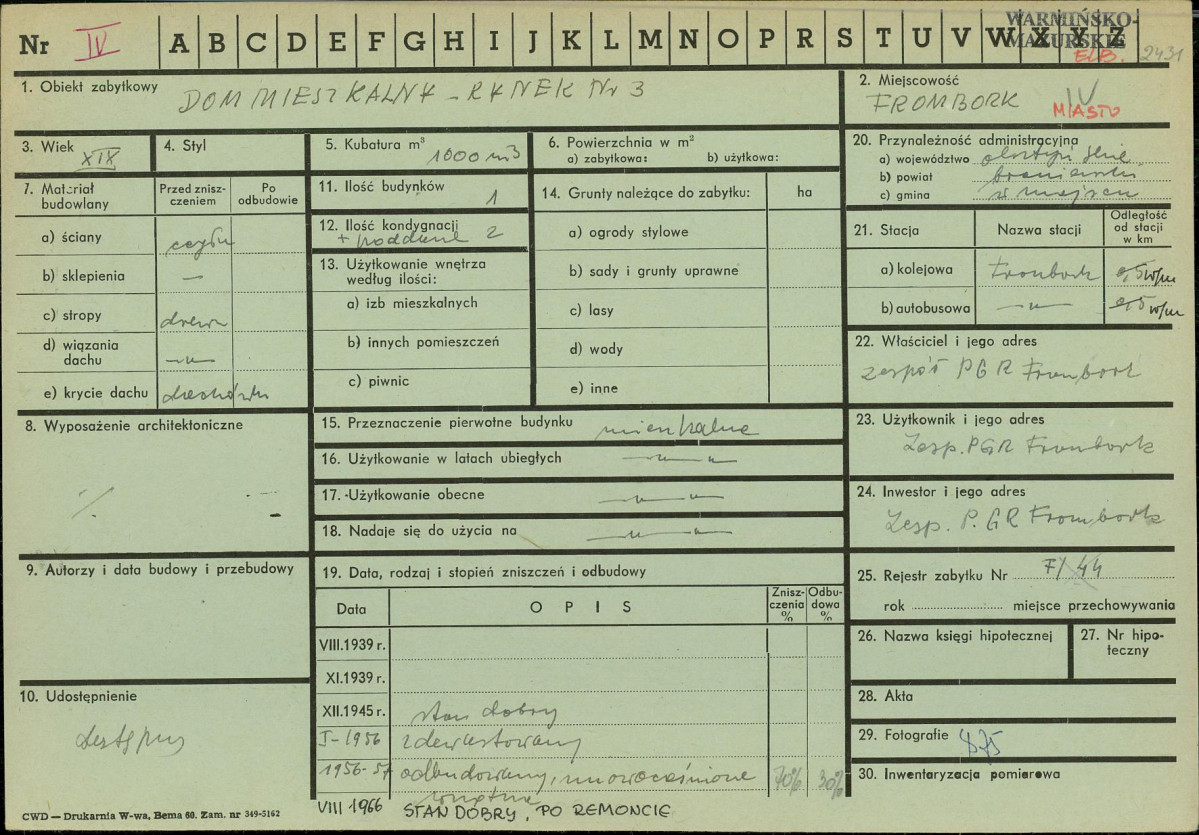 Nr IV A B C D E F G H I J K L M N O P R S T U V W X Y Z
WARMIŃSKO-
MAZURSKIE
ELB. 2431
1. Obiekt zabytkowy DOM MIESZKALNY – RYNEK Nr 3
2. Miejscowość
FROMBORK IV
MIASTO
3. Wiek XIX
4. Styl
5. Kubatura m³ 1000 m3
6. Powierzchnia w m²
a) zabytkowa: b) użytkowa:
7. Materiał budowlany
Przed zniszczeniem
Po odbudowie
a) ściany cegła
b) sklepienia —
c) stropy drewn
d) wiązania dachu —"—
e) krycie dachu dachówka
8. Wyposażenie architektoniczne
·/. · — –
9. Autorzy i data budowy i przebudowy
10. Udostępnienie
dostępny
11. Ilość budynków 1
12. Ilość kondygnacji
+ poddasze 2
13. Użytkowanie wnętrza według ilości:
a) izb mieszkalnych
b) innych pomieszczeń
c) piwnic
14. Grunty należące do zabytku: ha
a) ogrody stylowe
b) sady i grunty uprawne
c) lasy
d) wody
e) inne
15. Przeznaczenie pierwotne budynku mieszkalne
16. Użytkowanie w latach ubiegłych —"—"—
17. Użytkowanie obecne —"—"—
18. Nadaje się do użycia na —"—"—
19. Data, rodzaj i stopień zniszczeń i odbudowy
Data OPIS Zniszczenia % Odbudowa %
VIII.1939 r.
XI.1939 r.
XII.1945 r. stan dobry
I-1956 zdewastowany
1956-57 odbudowany, unowocześnione 70% 30%
wnętrze
VIII 1966 STAN DOBRY, PO REMONCIE
20. Przynależność administracyjna
a) województwo olsztyńskie
b) powiat braniewski
c) gmina w miejscu
21. Stacja Nazwa stacji Odległość od stacji w km
a) kolejowa Frombork 0,5 w/m
b) autobusowa —"— 0,5 w/m
22. Właściciel i jego adres
zespół PGR Frombork
23. Użytkownik i jego adres
Zesp. PGR Frombork
24. Inwestor i jego adres
Zesp. P.GR Frombork
25. Rejestr zabytku Nr F/44
rok miejsce przechowywania
26. Nazwa księgi hipotecznej
27. Nr hipoteczny
28. Akta
29. Fotografie
30. Inwentaryzacja pomiarowa
CWD — Drukarnia W-wa, Bema 60. Zam. nr 349-5162